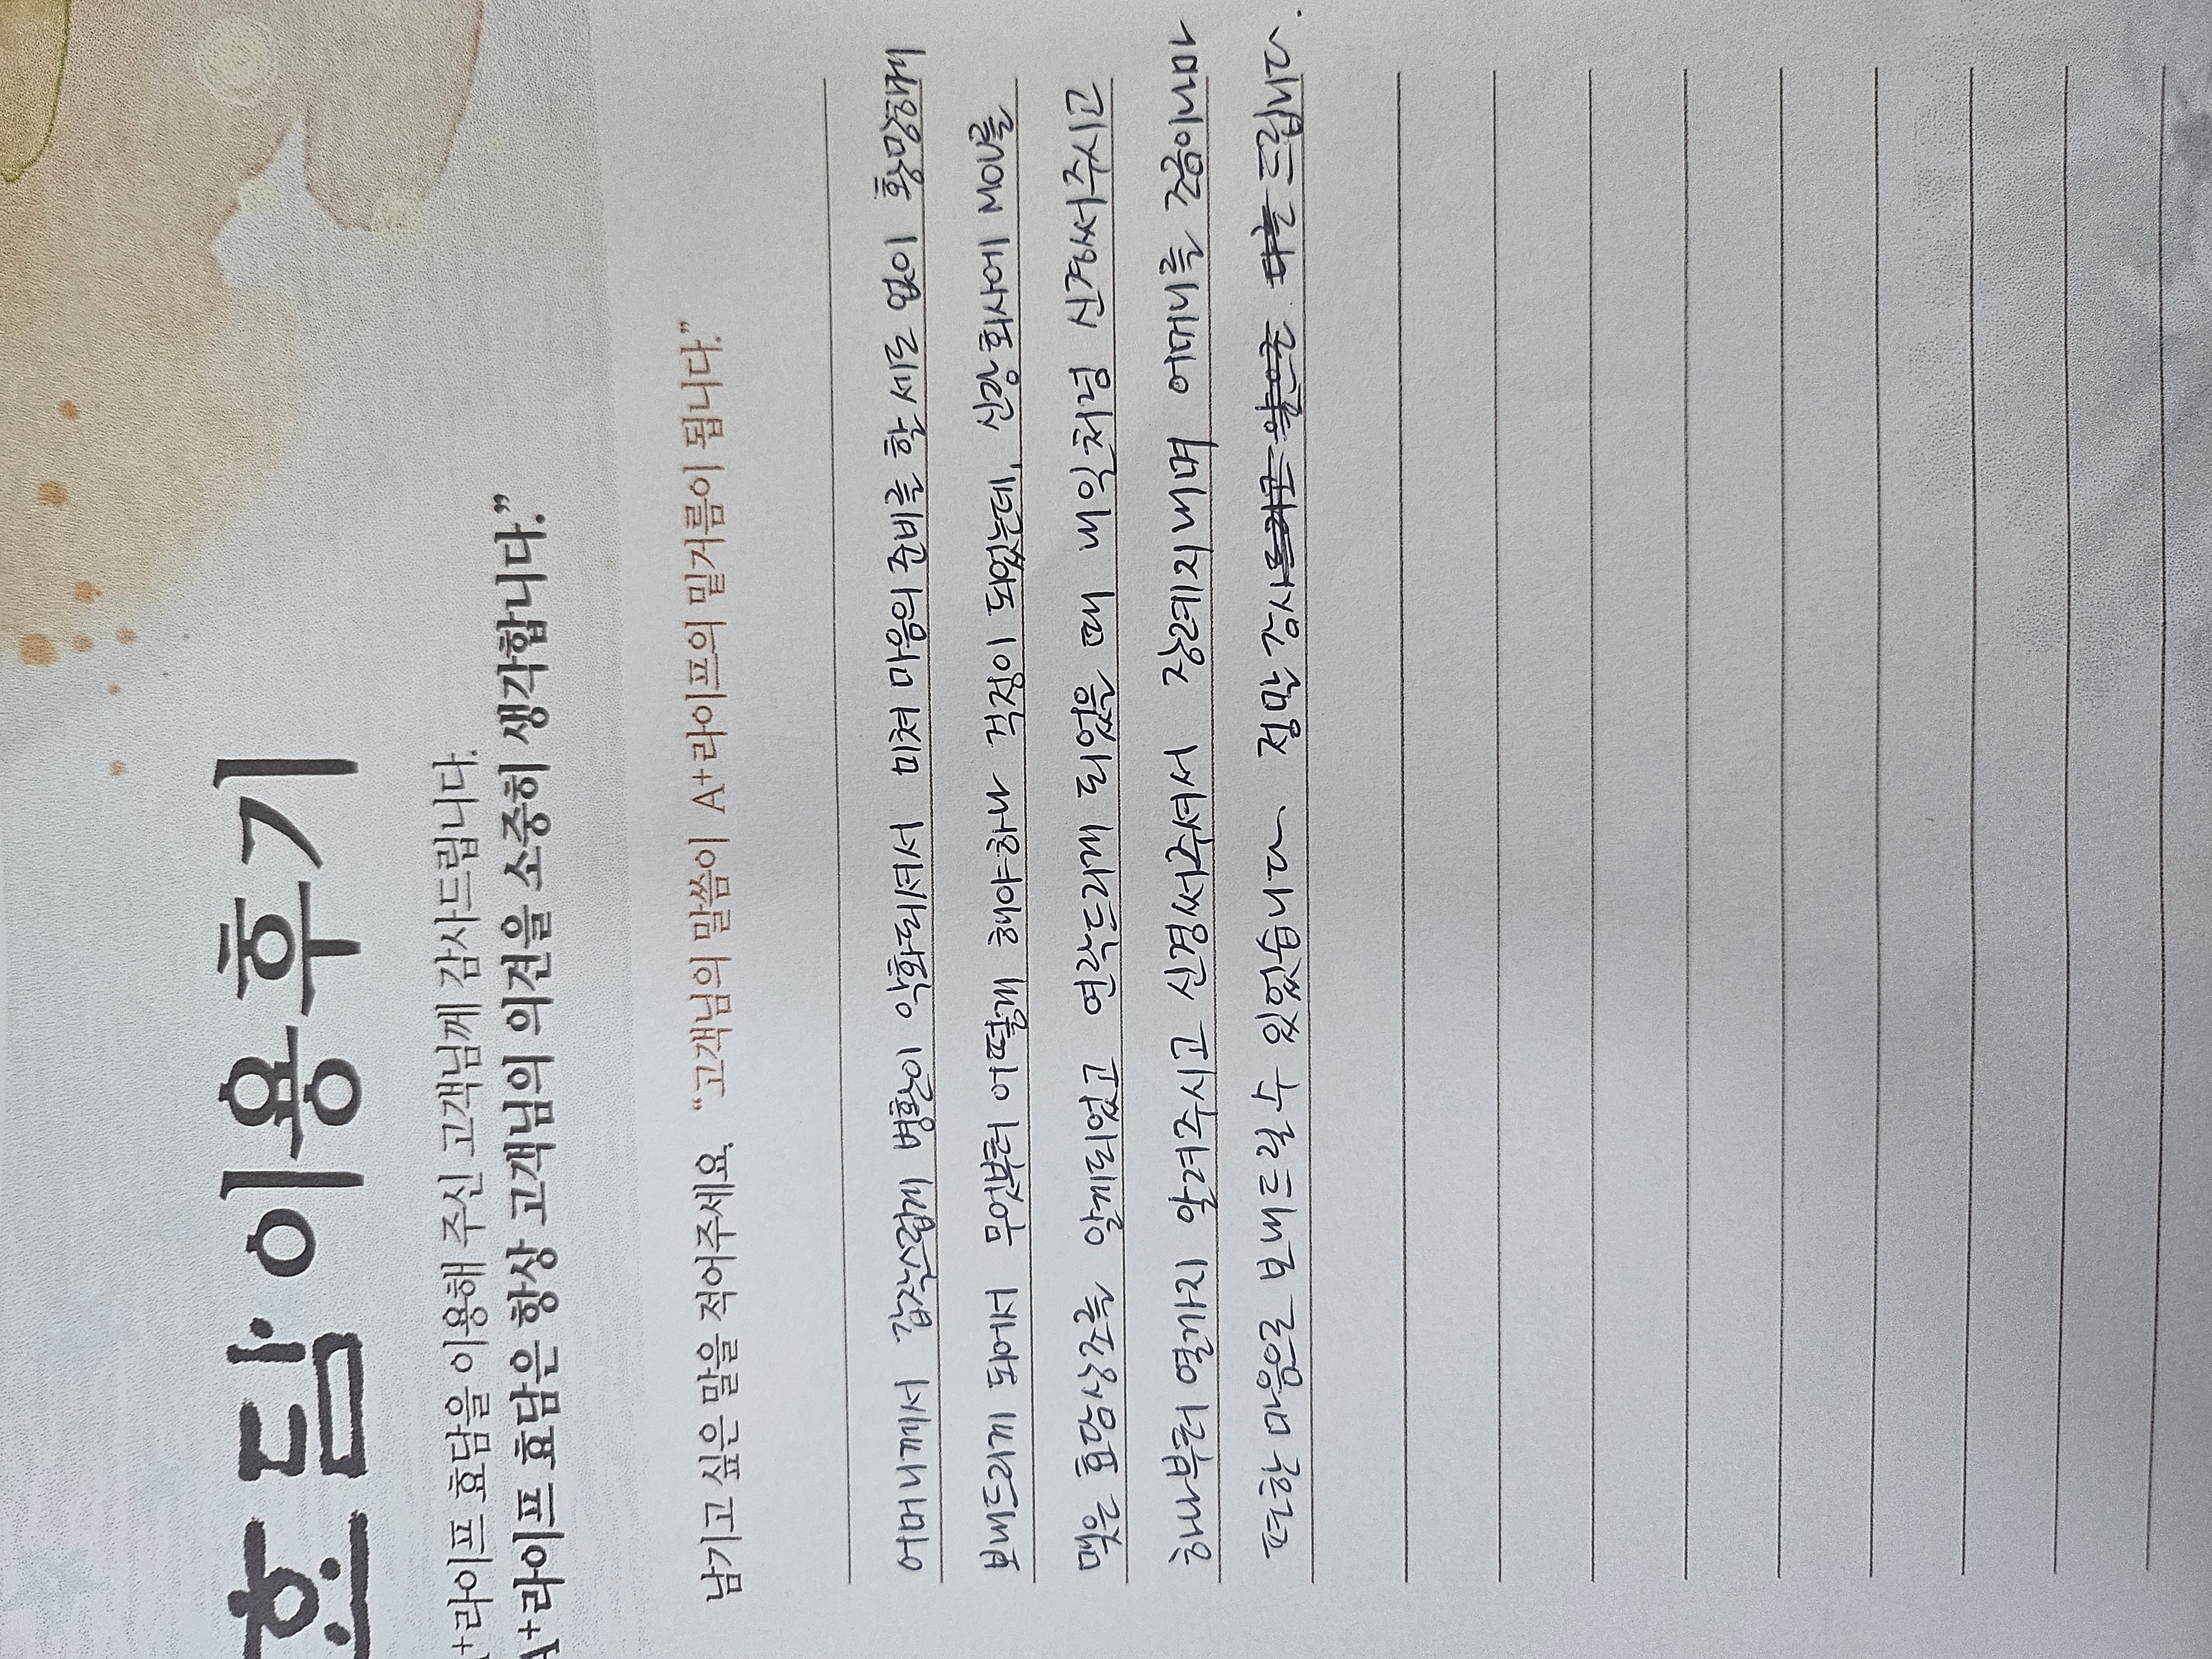 효담 이용후기
A+라이프 효담을 이용해 주신 고객님께 감사드립니다.
A+라이프 효담은 항상 고객님의 의견을 소중히 생각합니다.”
남기고 싶은 말을 적어주세요. “고객님의 말씀이 A+라이프의 밑거름이 됩니다.”
어머니께서 갑작스럽게 병환이 악화되셔서 미쳐 마음의 준비를 할 새도 없이 황망하게
보내드리게 되어서 무엇부터 어떻게 해야하나 걱정이 되었는데, 신랑 회사에 MOU를
맺은 효담상조를 알게되었고 연락드리게 되었을 때 내일처럼 신경써주시고
하나부터 열까지 알려주시고 신경써주셔서 장례지내며 어머니를 조금이나마
편한 마음으로 보내드릴 수 있었습니다. 정말 감사드립니다.